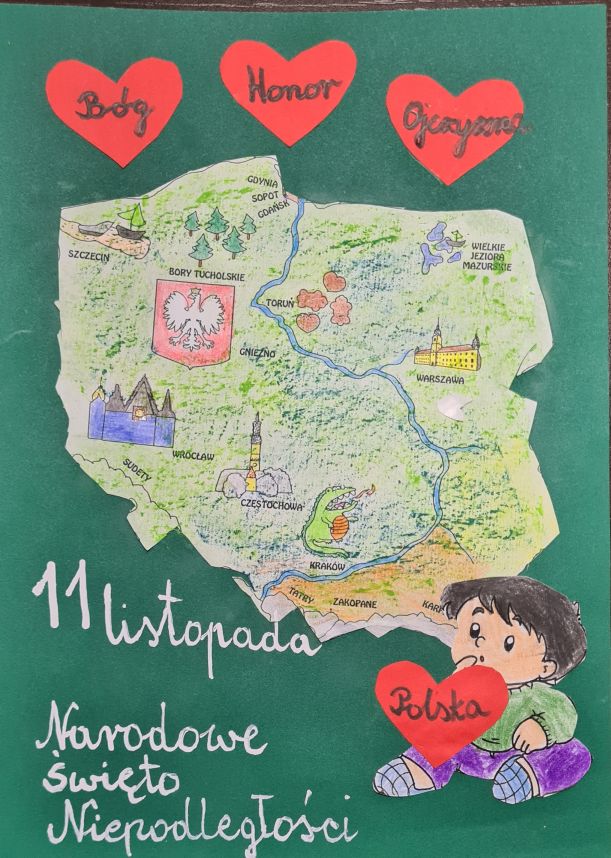 Bóg
Honor
Ojczyzna
GDYNIA
SOPOT
GDAŃSK
SZCZECIN
BORY TUCHOLSKIE
WIELKIE
JEZIORA
MAZURSKIE
TORUŃ
GNIEZNO
WARSZAWA
WROCŁAW
SUDETY
CZĘSTOCHOWA
KRAKÓW
TATRY
ZAKOPANE
KARP
11 listopada
Polska
Narodowe
święto
Niepodległości